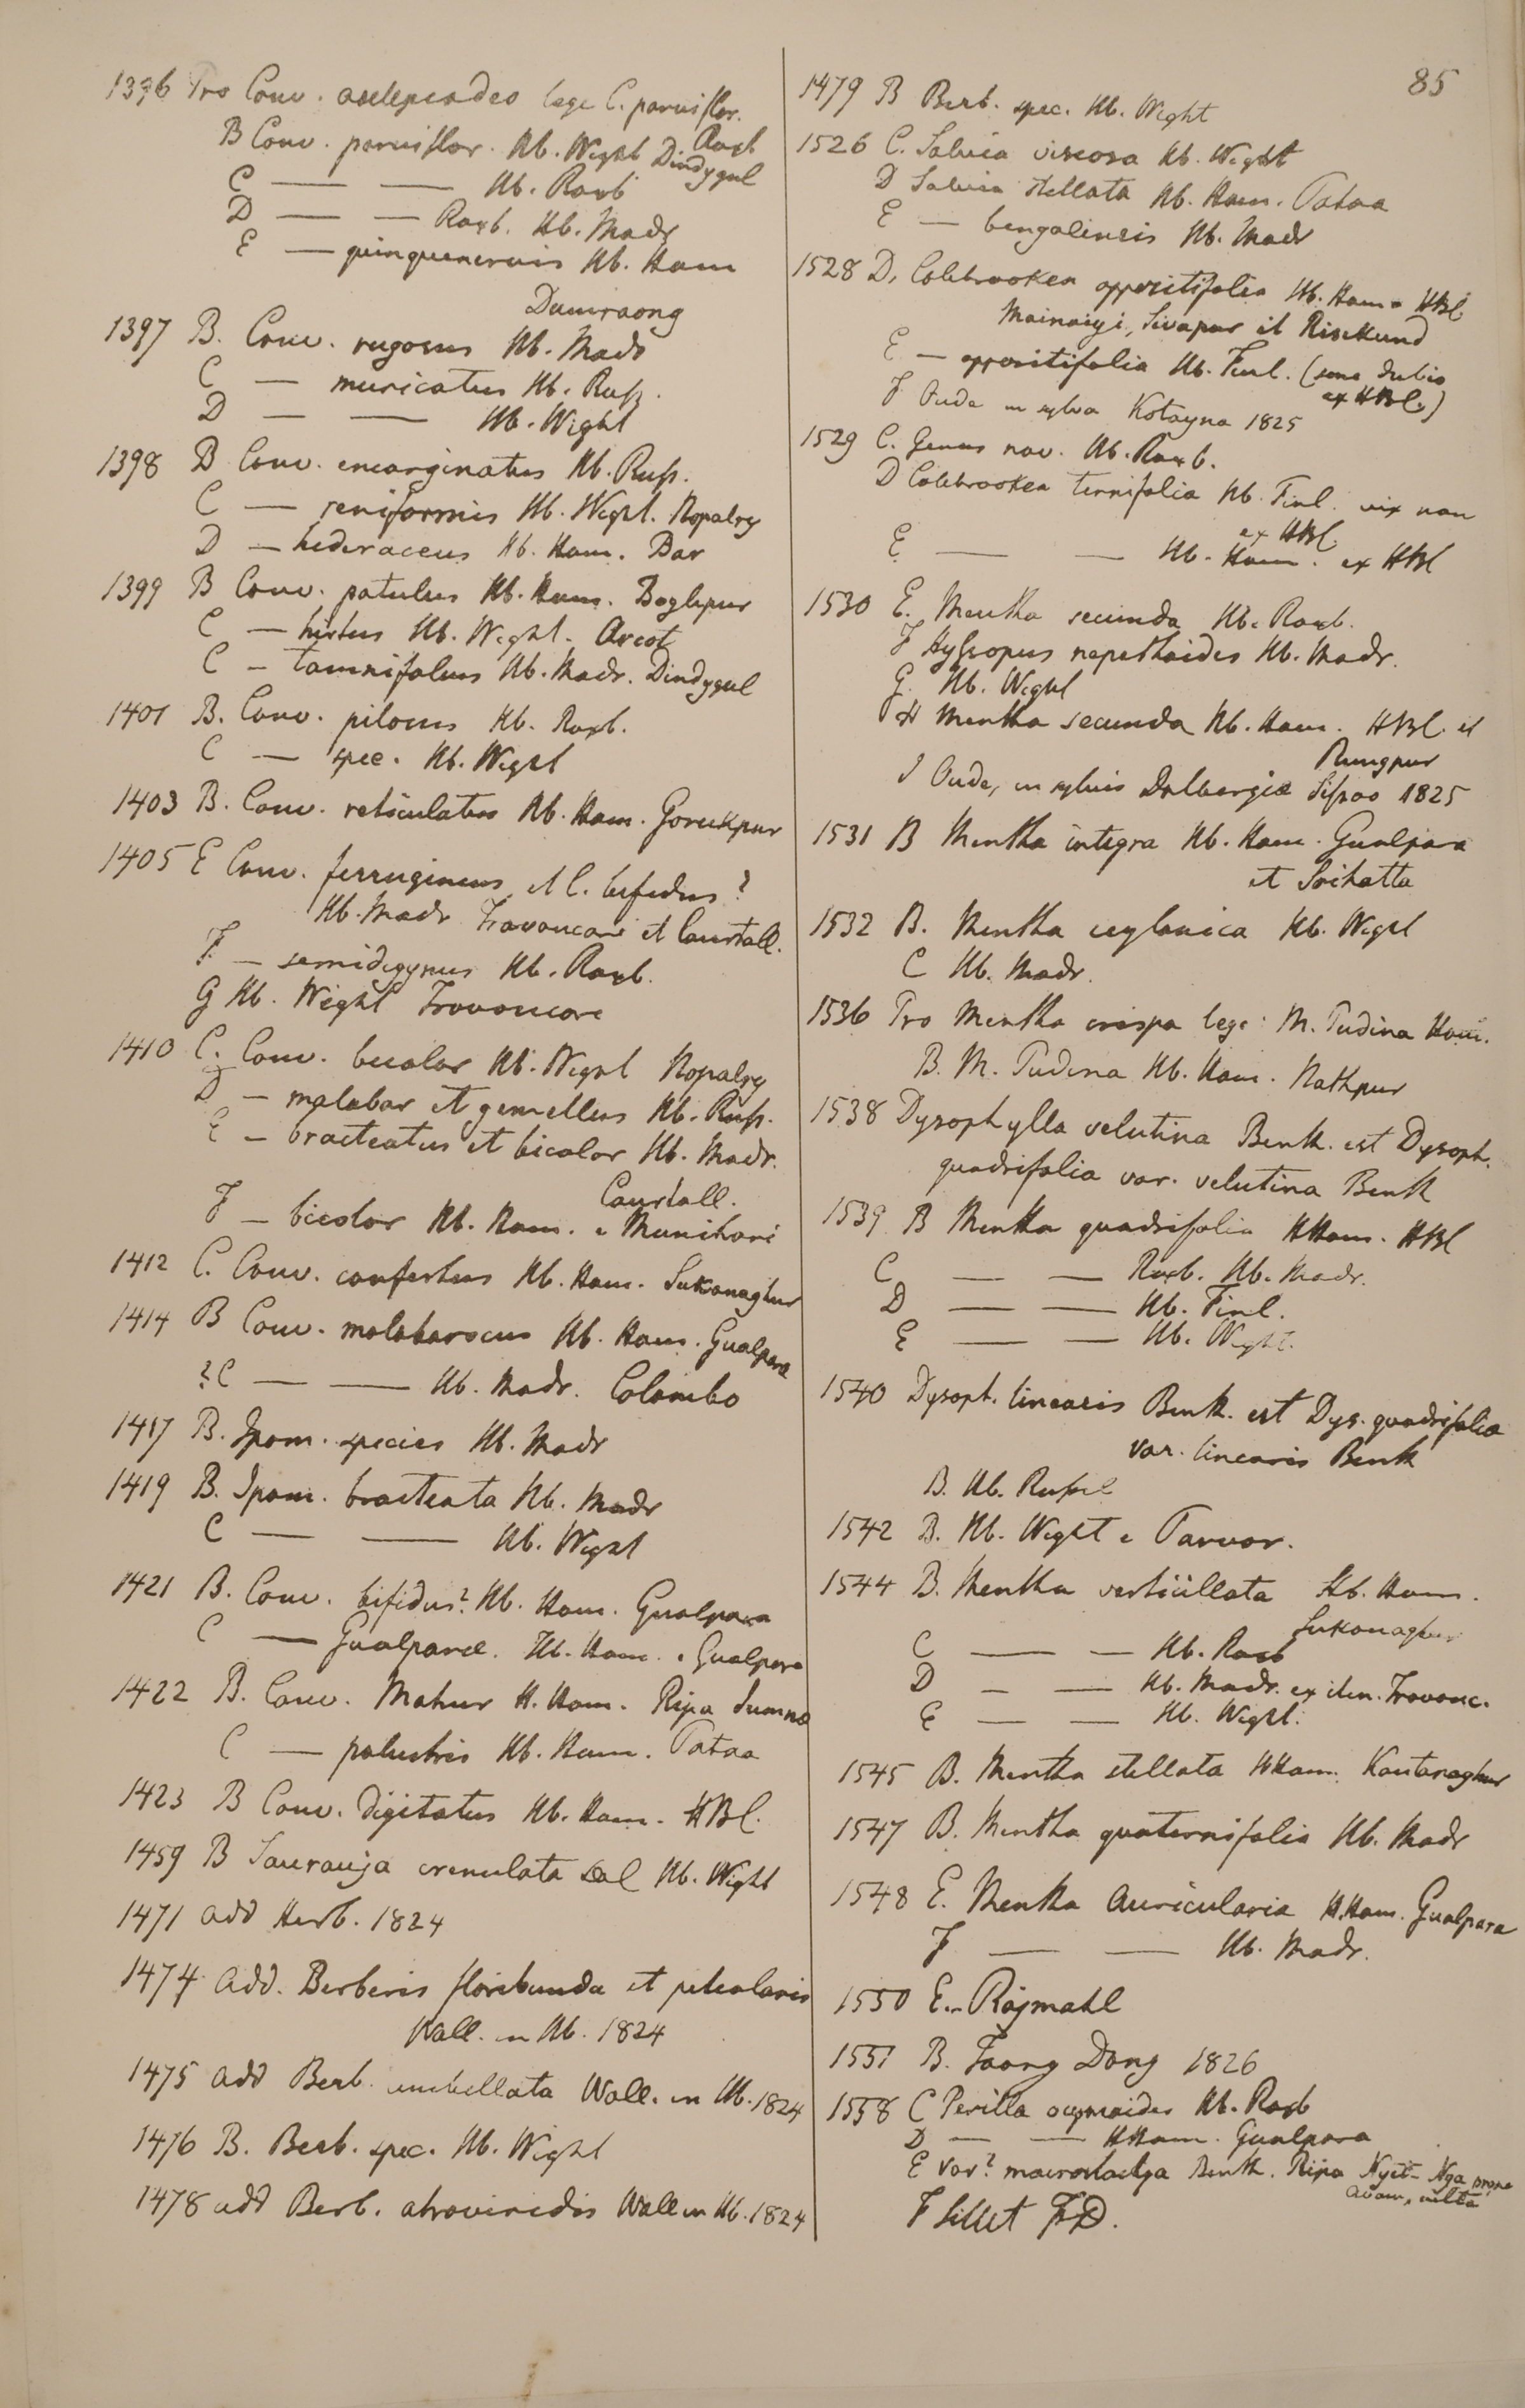 85
1396 Pro Conv. asclepiadeo lege C. parviflor.
Roxb
B Conv. parviflor. Hb. Wight Dindygul
C — — Hb. Roxb
D — — Roxb. Hb. Madr
E — quinquenervis Hb. Ham
Dumraong
1397 B. Conv. rugosus Hb. Madr
C — muricatus Hb. Russ.
D — — Hb. Wight
1398 B Conv. emarginatus Hb. Russ.
C — reniformis Hb. Wight. Nopalry
D — hederaceus Hb. Ham. Bar
1399 B Conv. patulus Hb. Ham. Boglipur
C — hirtus Hb. Wight. Arcot
C — tamnifolius Hb. Madr. Dindygul
1401 B. Conv. pilosus Hb. Roxb.
C — spec. Hb. Wight
1403 B. Conv. reticulatus Hb. Ham. Gorukpur
1405 E Conv. ferrugineus et C. bifidus?
Hb. Madr Travancore et Courtall.
F. — semidigynus Hb. Roxb.
G Hb. Wight Travancore
1410 C. Conv. bicolor Hb. Wight Nopalry
D — malabar et gemellus Hb. Russ.
E — bracteatus et bicolor Hb. Madr.
Courtall.
F — bicolor Hb. Ham. e Munihari
1412 C. Conv. confertus Hb. Ham. Sukanaghur
1414 B Conv. malabaricus Hb. Ham. Gualpara
?C — — Hb. Madr. Colombo
1417 B. Ipom. species Hb. Madr
1419 B. Ipom. bracteata Hb. Madr
C — — Hb. Wight
1421 B. Conv. bifidus? Hb. Ham. Gualpara
C — Gualparae. Hb. Ham. e Gualpara
1422 B. Conv. Mahur H. Ham. Ripa Sumna
C — palustris Hb. Ham. Patna
1423 B Conv. digitatus Hb. Ham. HBl.
1459 B Saurauja crenulata Hb. Wight
1471 add Herb. 1824
1474 add. Berberis floribunda et petiolaris
Wall. in Hb. 1824
1475 add Berb. umbellata Wall. in Hb. 1824
1476 B. Berb. spec. Hb. Wight
1478 add Berb. atroviridis Wall in Hb. 1824
1479 B Berb. spec. Hb. Wight
1526 C. Salvia viscosa Hb. Wight
D Salvia stellata Hb. Ham. Patna
E — bengalensis Hb. Madr
1528 D. Colebrookea oppositifolia Hb. Ham = HBl.
Mainaigi, Sivapur et Risikund
E — oppositifolia Hb. Finl. (sine dubio
ex HBl.)
F Oude in sylva Kotayna 1825
1529 C. Genus nov. Hb. Roxb.
D Colebrookea ternifolia Hb. Finl. vix non
ex HBl.
E — — Hb. Ham. ex HBl
1530 E. Mentha secunda Hb. Roxb.
F Hyssopus nepethoides Hb. Madr.
G. Hb. Wight
H Mentha secunda Hb. Ham. HBl. et
Rungpur
I Oude, in sylvis Dalbergiæ Sissoo 1825
1531 B Mentha integra Hb. Ham. Gualpara
et Srihatta
1532 B. Mentha zeylanica Hb. Wight
C Hb. Madr.
1536 Pro Mentha crispa lege: M. Pudina Ham.
B. M. Pudina Hb. Ham. Nathpur
1538 Dysophylla velutina Benth. est Dysoph.
quadrifolia var. velutina Benth
1539 B Mentha quadrifolia HHam. HBl
C — — Roxb. Hb. Madr.
D — — Hb. Finl.
E — — Hb. Wight.
1540 Dysoph. linearis Benth. est Dys. quadrifolia
var. linearis Benth
B. Hb. Russel
1542 B. Hb. Wight e Parvor.
1544 B. Mentha verticillata Hb. Ham.
Sukanaghur
C — — Hb. Roxb
D — — Hb. Madr. ex itin. Travanc.
E — — Hb. Wight.
1545 B. Mentha stellata HHam. Kantanaghur
1547 B. Mentha quaternifolia Hb. Madr
1548 E. Mentha Auricularia H.Ham. Gualpara
F — — Hb. Madr.
1550 E. Rajmahl
1551 B. Taong Dong 1826
1558 C Perilla ocymoides Hb. Roxb
D — — HHam. Gualpara
E var? macrostachya Benth. Ripa Nyet-Nga prope
Avam, culta
F Sillet FD.